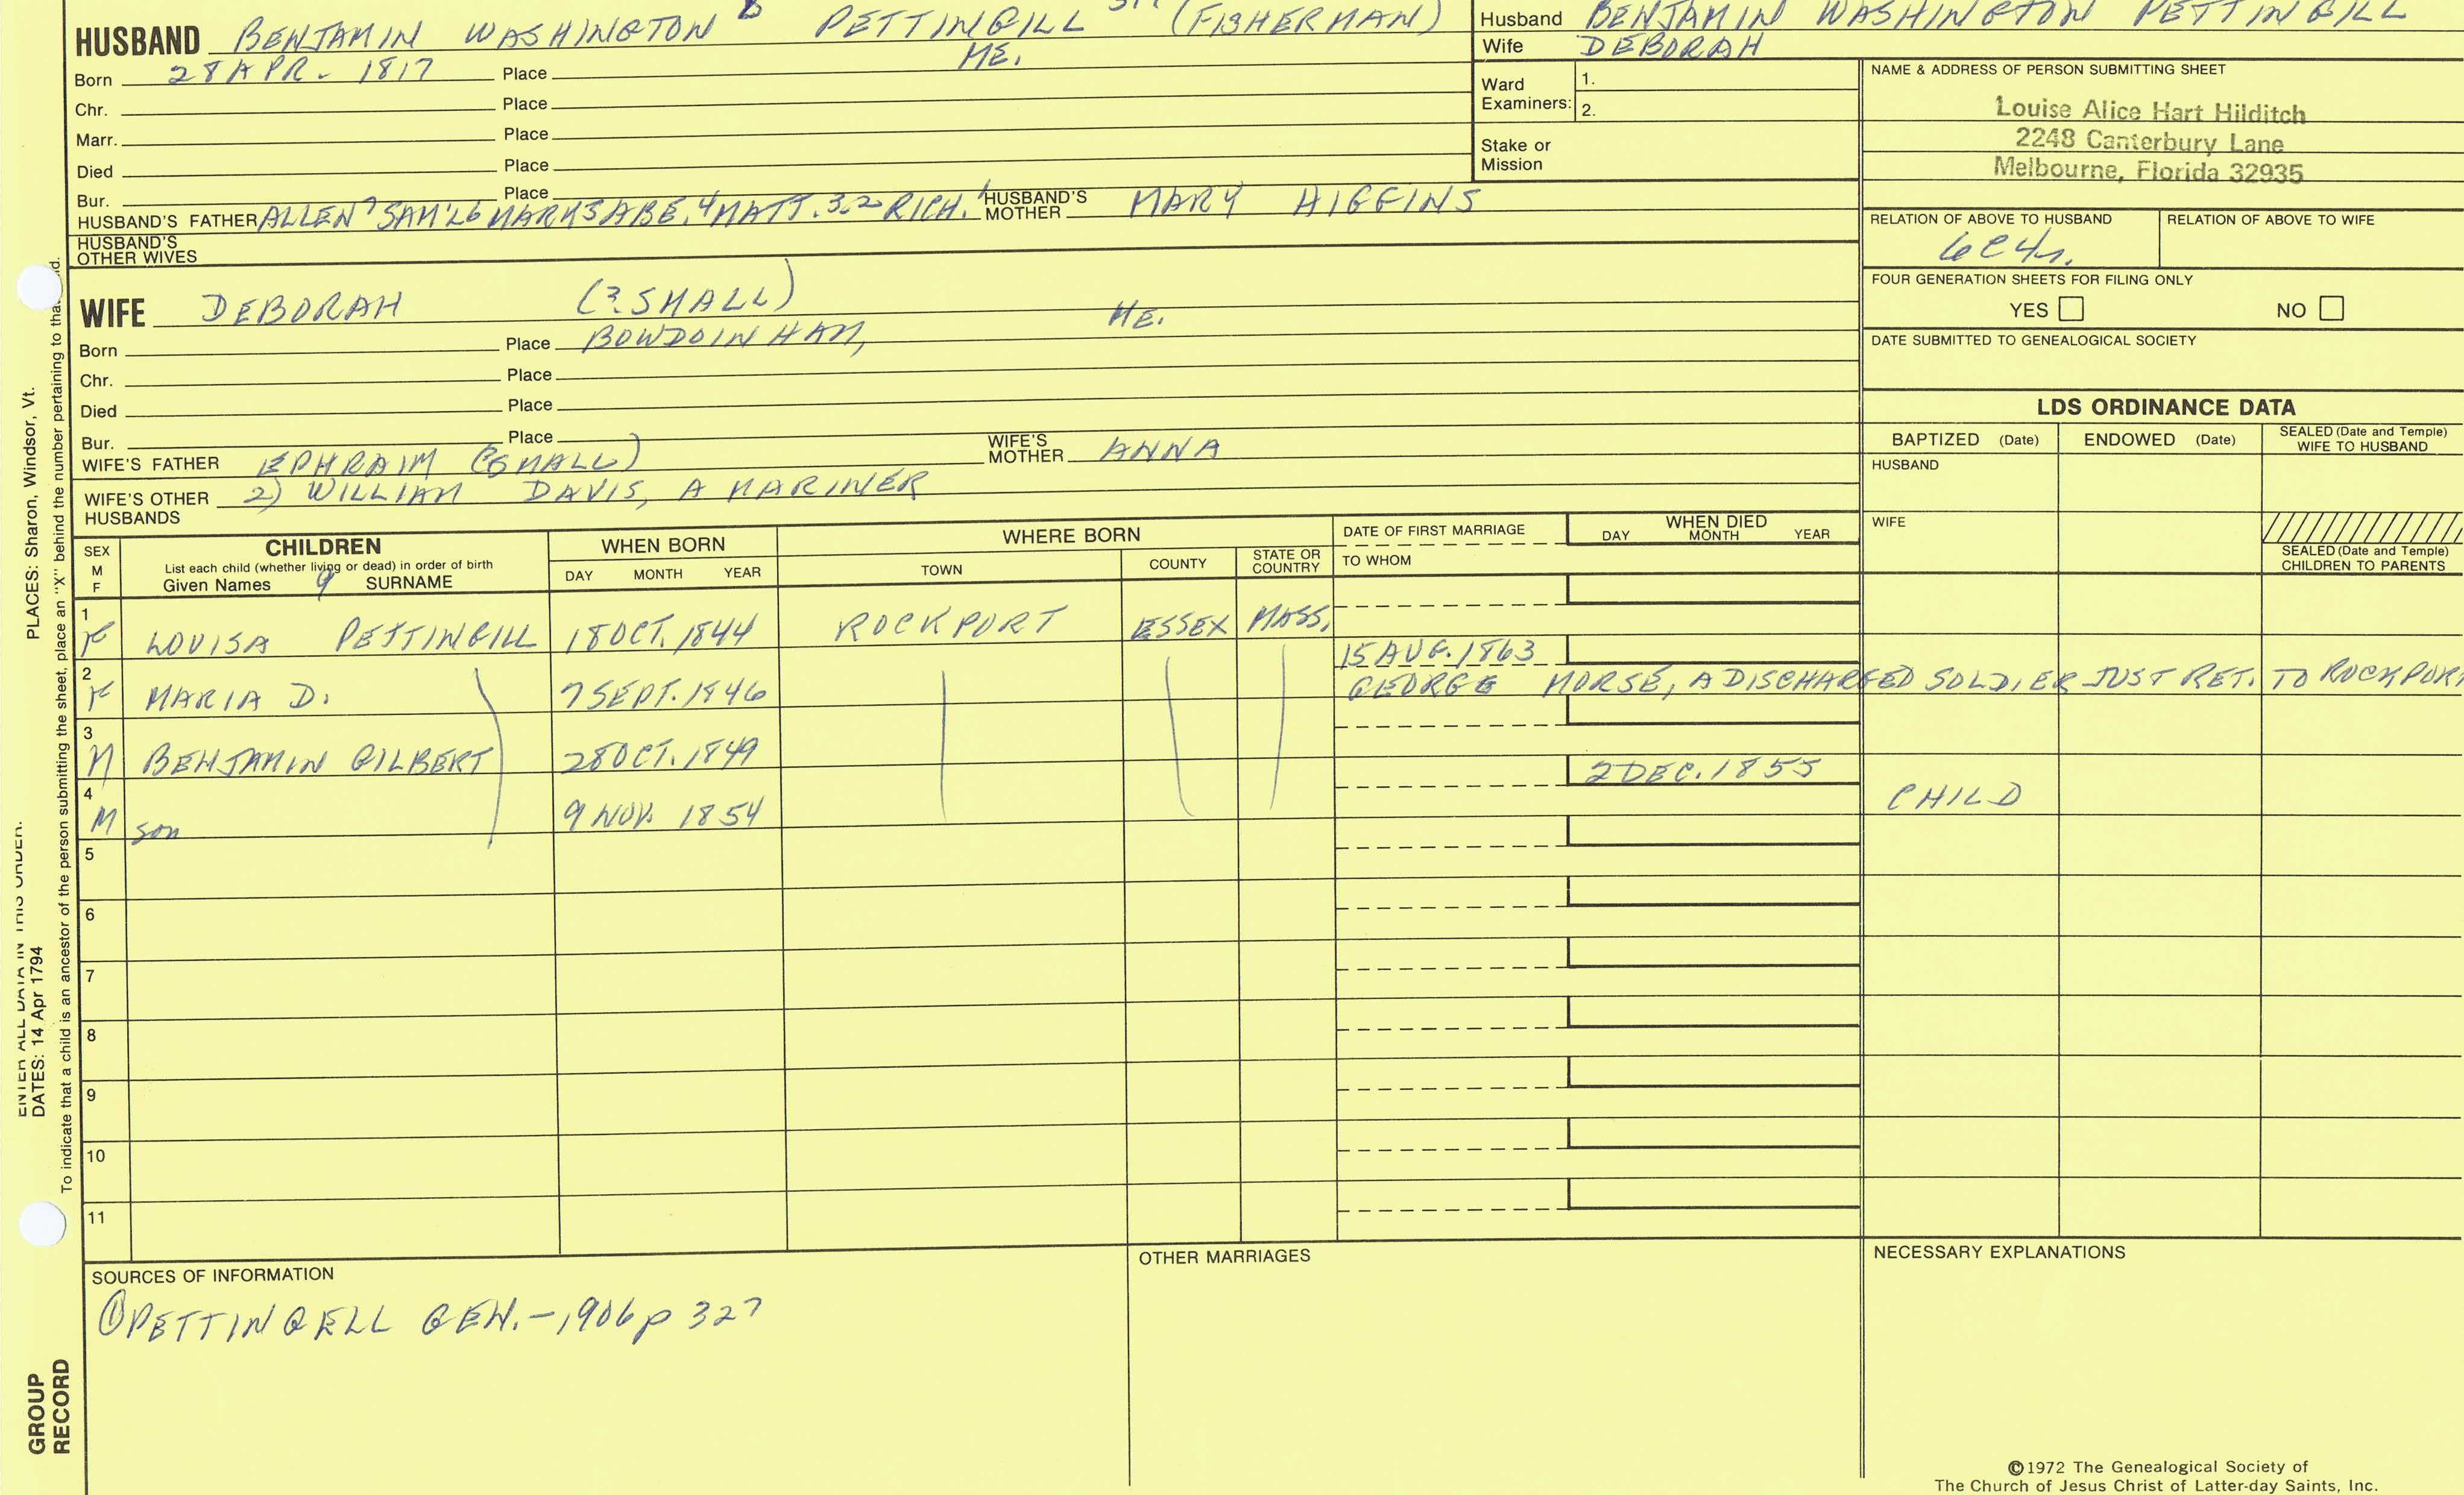 HUSBAND BENJAMIN WASHINGTON PETTINGILL (FISHERMAN)
Born 28 APR. 1817 Place ME.
Chr. Place
Marr. Place
Died Place
Bur. Place
HUSBAND'S FATHER ALLEN 7 SAM'L 6 MARK 5 ABE. 4 MATT. 3, 2 RICH. 1 HUSBAND'S MOTHER MARY HIGGINS
HUSBAND'S OTHER WIVES
Husband BENJAMIN WASHINGTON PETTINGILL
Wife DEBORAH
Ward Examiners: 1.
2.
Stake or Mission
NAME & ADDRESS OF PERSON SUBMITTING SHEET
Louise Alice Hart Hilditch
2248 Canterbury Lane
Melbourne, Florida 32935
RELATION OF ABOVE TO HUSBAND RELATION OF ABOVE TO WIFE
6C4r.
FOUR GENERATION SHEETS FOR FILING ONLY
YES NO
DATE SUBMITTED TO GENEALOGICAL SOCIETY
WIFE DEBORAH (? SMALL)
Born Place BOWDOINHAM, ME.
Chr. Place
Died Place
Bur. Place
WIFE'S FATHER EPHRAIM (SMALL) WIFE'S MOTHER ANNA
WIFE'S OTHER HUSBANDS 2) WILLIAM DAVIS, A MARINER
LDS ORDINANCE DATA
BAPTIZED (Date) ENDOWED (Date) SEALED (Date and Temple) WIFE TO HUSBAND
HUSBAND
WIFE
SEALED (Date and Temple) CHILDREN TO PARENTS
SEX M F CHILDREN List each child (whether living or dead) in order of birth Given Names 9 SURNAME
WHEN BORN DAY MONTH YEAR
WHERE BORN TOWN COUNTY STATE OR COUNTRY
DATE OF FIRST MARRIAGE TO WHOM
WHEN DIED DAY MONTH YEAR
1 F LOUISA PETTINGILL 18 OCT. 1844 ROCKPORT ESSEX MASS.
2 F MARIA D. 7 SEPT. 1846 15 AUG. 1863
GEORGE MORSE, A DISCHARGED SOLDIER JUST RET. TO ROCKPORT
3 M BENJAMIN GILBERT 28 OCT. 1849
4 M son 9 NOV. 1854 2 DEC. 1855 CHILD
5
6
7
8
9
10
11
SOURCES OF INFORMATION
① PETTINGELL GEN. - 1906 p 327
OTHER MARRIAGES
NECESSARY EXPLANATIONS
©1972 The Genealogical Society of
The Church of Jesus Christ of Latter-day Saints, Inc.
PLACES: Sharon, Windsor, Vt.
ENTER ALL DATA IN THIS ORDER:
DATES: 14 Apr 1794
To indicate that a child is an ancestor of the person submitting the sheet, place an "X" behind the number pertaining to that
GROUP
RECORD